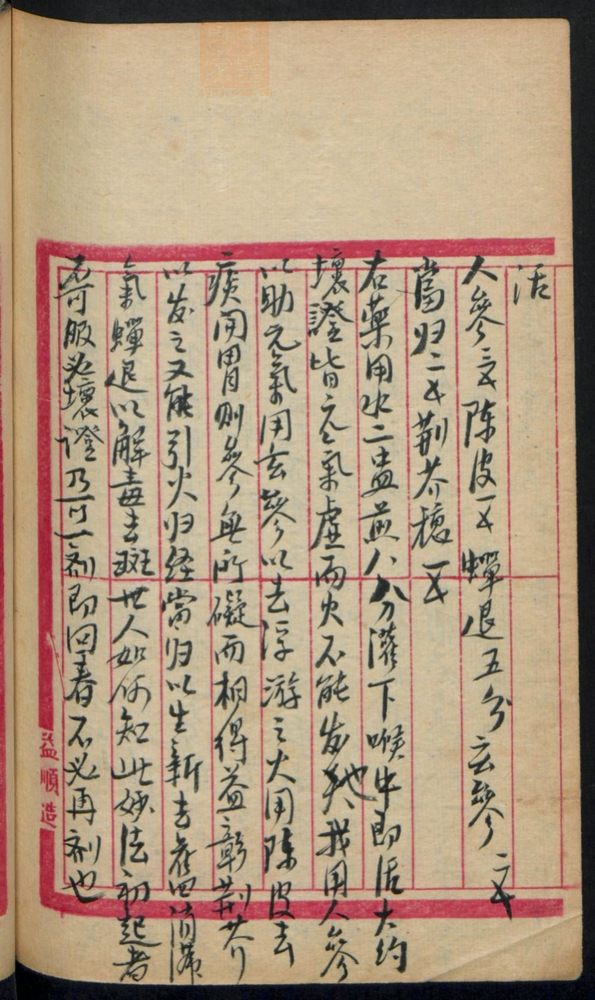 活
人參三戈陳皮一戈蟬退五分玄參二戈
當归二戈荆芥穗一戈
右藥用水二盅煎八分灌下喉中即活大約
壞證皆元氣虛而火不能发也我用人參
以助元氣用玄參以去浮游之火用陳皮去
痰開胃則參無所礙而相得益彰荆芥
以发之又能引火归经當归以生新去舊消滯
氣蟬退以解毒去斑世人如何知此妙法初起者
不可服必壞證乃可一剂即回春不必再剂也
益順造